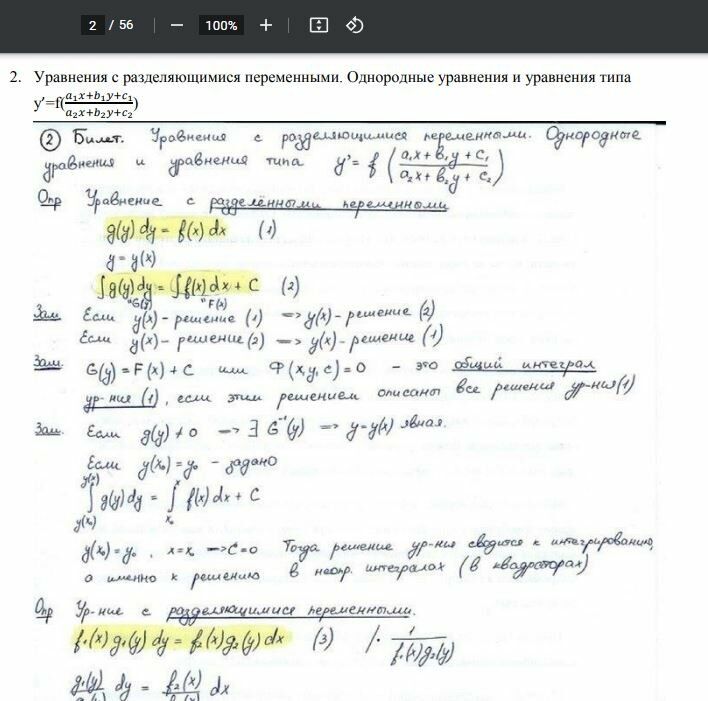 2 / 56 — 100% +
2. Уравнения с разделяющимися переменными. Однородные уравнения и уравнения типа
y'=f(a₁x+b₁y+c₁/a₂x+b₂y+c₂)
② Билет. Уравнения с разделяющимися переменными. Однородные
уравнения и уравнения типа y' = f (a₁x + b₁y + c₁ / a₂x + b₂y + c₂)
Опр Уравнение с разделёнными переменными
g(y) dy = f(x) dx (1)
y = y(x)
∫g(y) dy = ∫f(x) dx + C (2)
"G(y) "F(x)
Зам Если y(x) - решение (1) => y(x) - решение (2)
Если y(x) - решение (2) => y(x) - решение (1)
Зам. G(y) = F(x) + C или Ф(x, y, c) = 0 - это общий интеграл
ур-ния (1), если этим решением описаны все решения ур-ния (1)
Зам. Если g(y) ≠ 0 => ∃ G⁻¹(y) => y = y(x) явная.
Если y(x₀) = y₀ - задано
y(x) x
∫ g(y) dy = ∫ f(x) dx + C
y(x₀) x₀
y(x₀) = y₀, x = x₀ => C = 0 Тогда решение ур-ния сводится к интегрированию,
а именно к решению в неопр. интегралах (в квадратурах)
Опр Ур-ние с разделяющимися переменными.
f₁(x) g₁(y) dy = f₂(x) g₂(y) dx (3) /· 1/f₁(x)g₂(y)
g₁(y) dy = f₂(x) dx